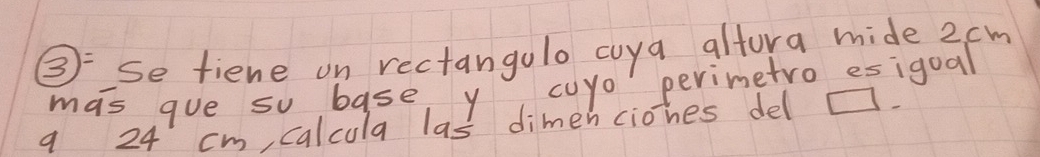 ③= Se tiene un rectangulo cuya altura mide 2cm
más que su base y cuyo perimetro es igual
a 24 cm, calcula las dimenciones del □.